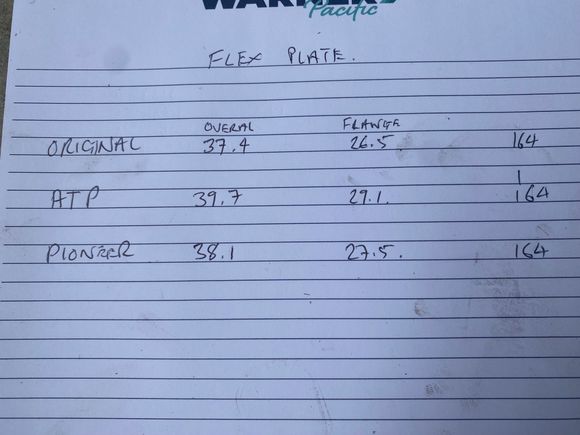 Pacific
FLEX PLATE.
OVERAL FLANGE
ORIGINAL 37.4 26.5 164
ATP 39.7 29.1. 164
PIONEER 38.1 27.5. 164